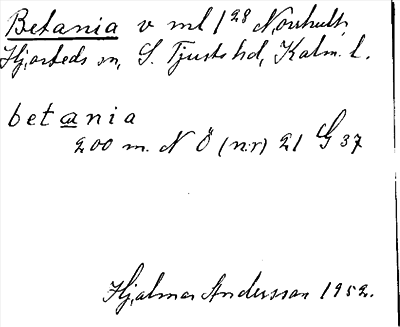 Betania v ml 1²⁸ Norrhult,
Hjorteds sn, S. Tjusts hd, Kalm. l.
betania
200 m. N Ö (n:r) 21 G 37
Hjalmar Andersson 1952.